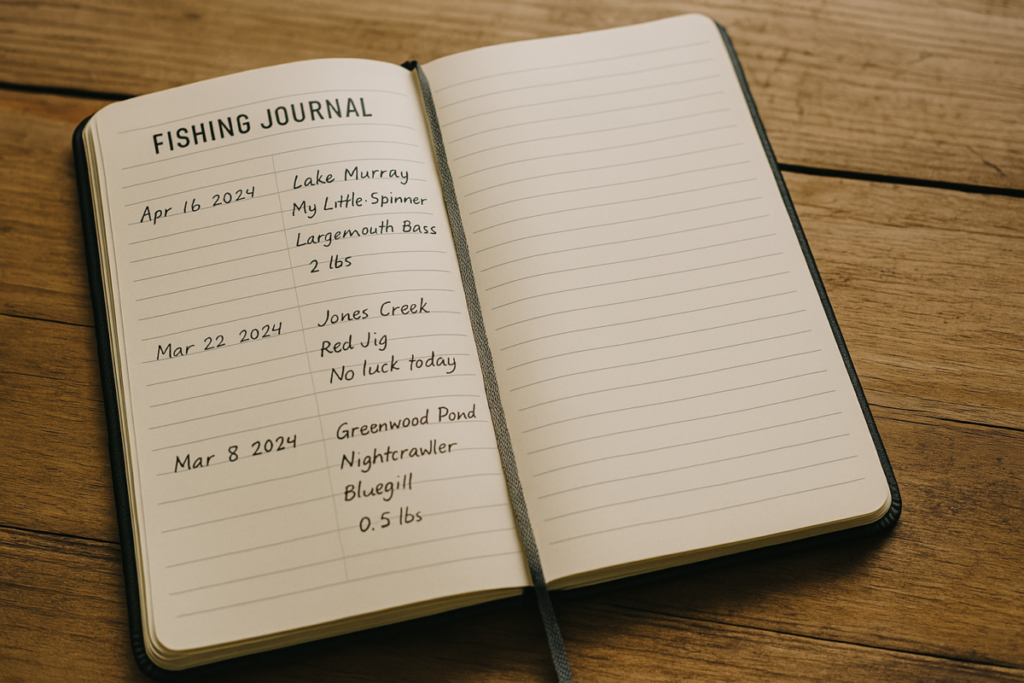 FISHING JOURNAL
Apr 16 2024
Lake Murray
My Little Spinner
Largemouth Bass
2 lbs
Mar 22 2024
Jones Creek
Red Jig
No luck today
Mar 8 2024
Greenwood Pond
Nightcrawler
Bluegill
0.5 lbs